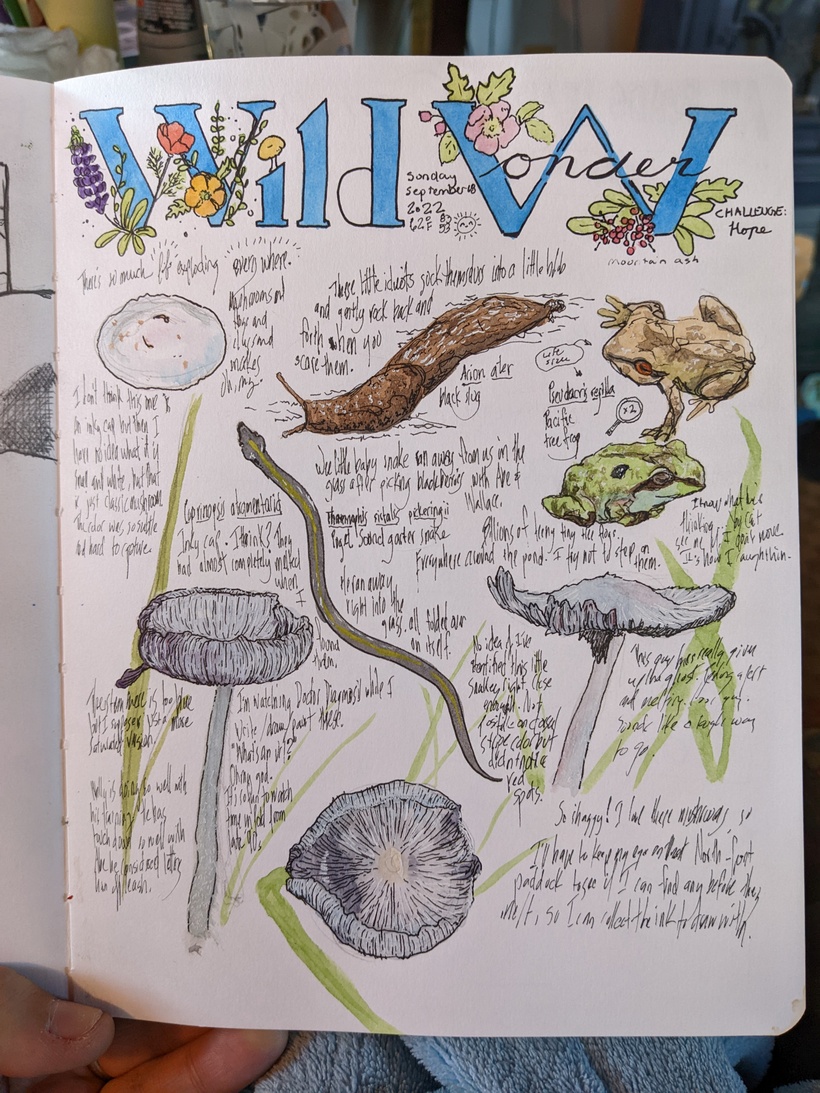 Wild Wonder
Sunday
September 18
2022
CHALLENGE:
Hope
mountain ash
There's so much life exploding everywhere.
Mushrooms and
frogs and
slugs and
snakes
oh, my.
These little idiots suck themselves into a little blob
and gently rock back and
forth when you
scare them.
Arion ater
black slug
life
size
Pseudacris regilla
Pacific
tree frog
x2
I don't think this one is
an inky cap but then I
have no idea what it is
and white, but that
is just classic mushroom.
The color was so subtle
and hard to capture.
Wee little baby snake ran away from us in the
grass after picking blackberries with
Wallace.
Thamnophis sirtalis pickeringii
Puget Sound garter snake
He ran away
right into the
grass, all folded over
on itself.
Billions of teeny tiny tree frogs.
Everywhere around the pond. I try not to step on
them.
I know what he's
thinking
see me if I don't move.
It's how I caught him.
Coprinopsis atramentaria
Inky cap. I think? They
had almost completely melted
when I
found
them.
No idea if I've
identified this little
snake right. Close
enough. Not
stripe color but
didn't notice
red
spots.
This guy has really given
up the ghost.
and melting.
Sounds like a tough way
to go.
The stem here is too blue
but I suppose it's a more
saturated version.
I'm watching Doctor Thermosil while I
write/draw/paint these.
"What's an url?"
Oh my god.
It's so fun to watch
late 90s.
is doing so well with
his training. He has
touch down so well with
off leash.
So shaggy! I love these mushrooms, so
I'll have to keep my eye on that North-front
paddock to see if I can find any before they
melt, so I can collect the ink to draw with.